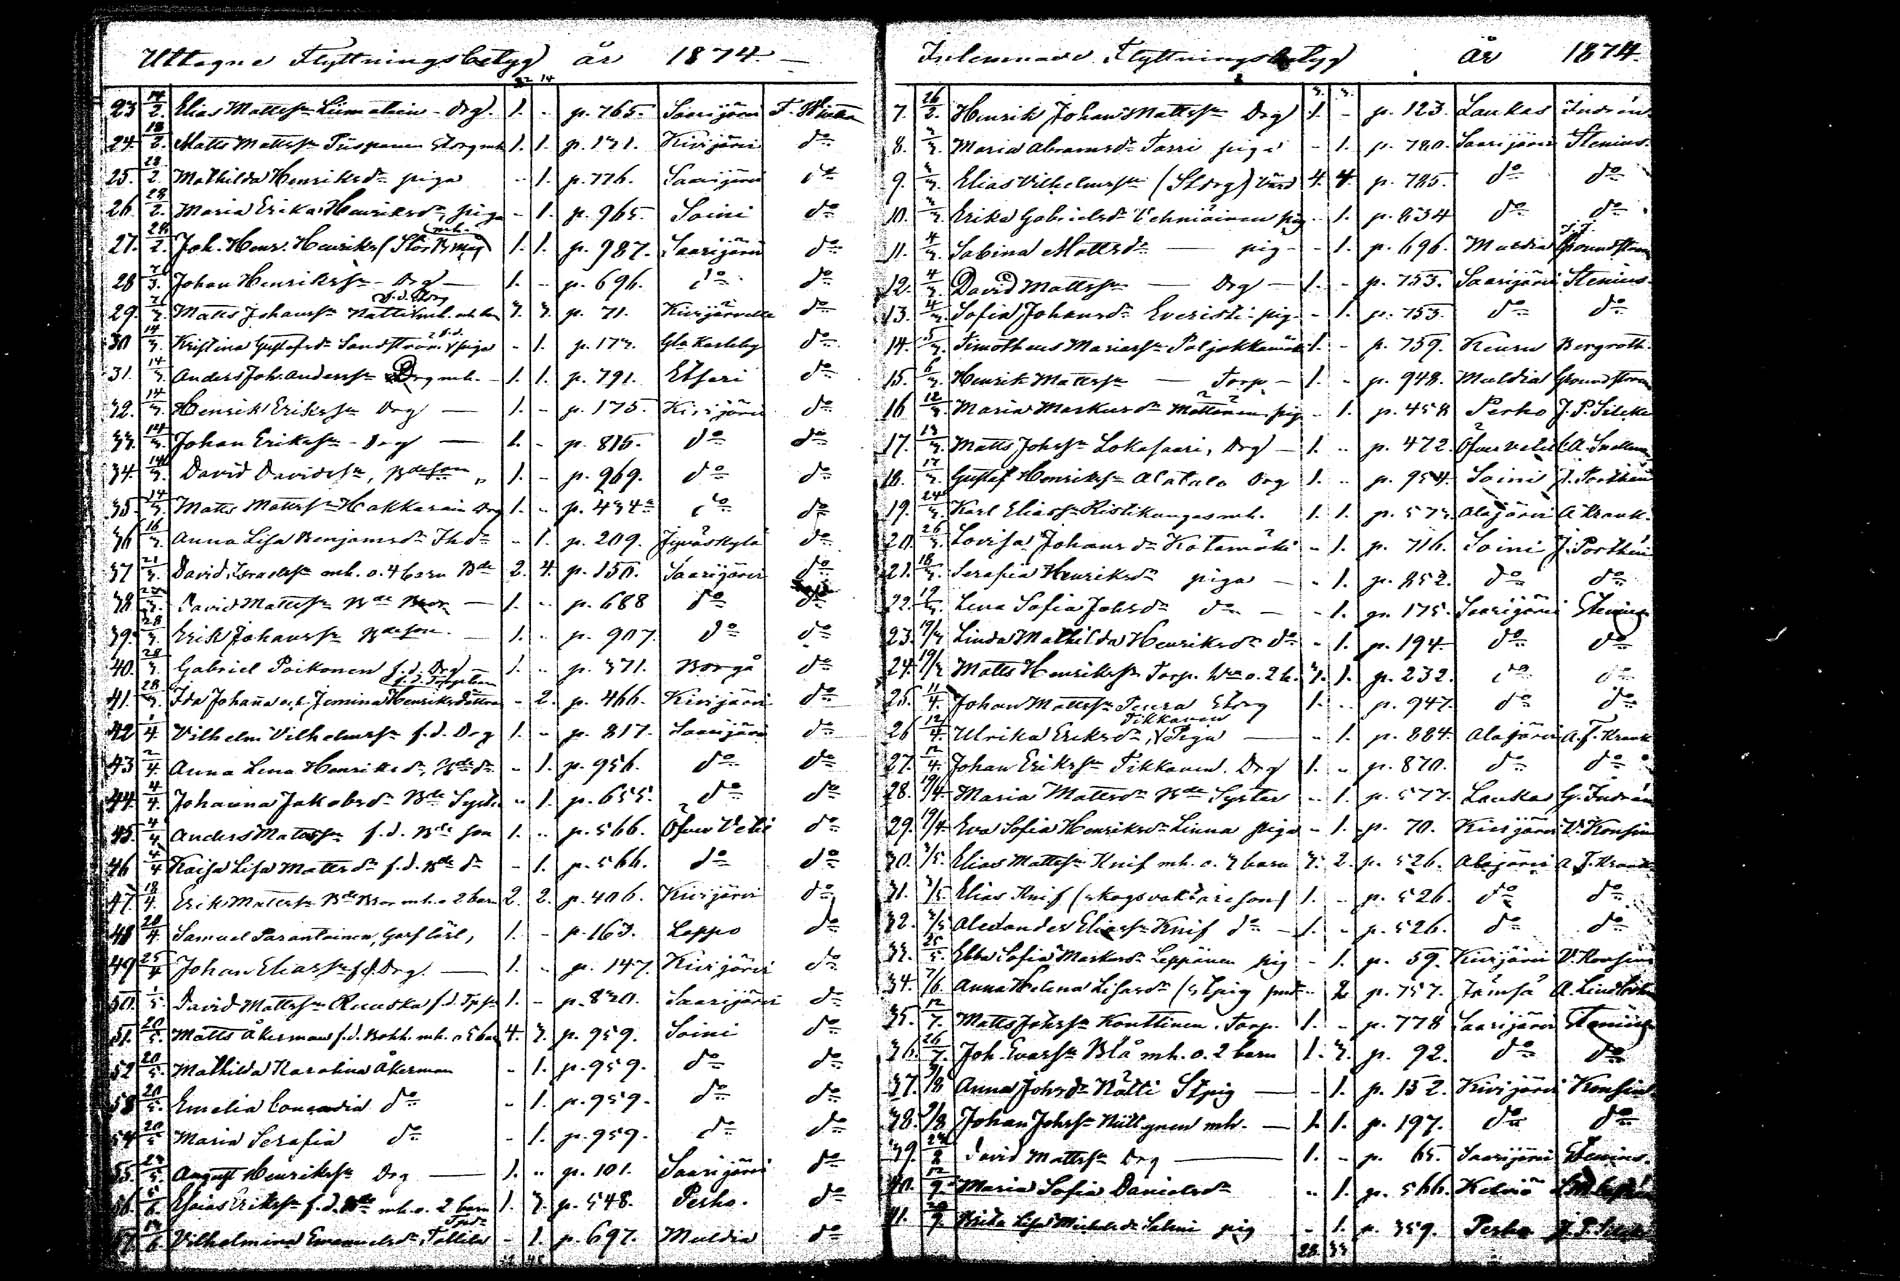 Uttagne Flyttningsbetyg år 1874.
22 14
23 14/2. Elias Mattss. Liimatain - Drg. 1. - p. 765. Saarijärvi
24. 18/2. Matts Mattss. Piispanen 1. 1. p. 131. Kivijärvi do
25. 28/2. Mathilda Henriksd. piga - 1. p. 776. Saarijärvi do
26. 28/2. Maria Erika Henriksd. piga - 1. p. 965. Soini do
27. 28/2. Joh. Henr. Henrikss. 1. 1. p. 987. Saarijärvi do
28 7/3. Johan Henrikss. Drg - 1. - p. 696. do do
29. 7/3. Matts Johanss. Nätti 3. 3. p. 71. Kivijärvi do
30 14/3. Kristina Gustafsd. Sandström f.d. piga - 1. p. 173. Gla Karleby do
31. 14/3. Anders Joh. Anderss. Drg mh. - 1. 1. p. 791. Etseri do
32. 14/3. Henrik Erikss. Drg - 1. - p. 175. Kivijärvi do
33. 14/3. Johan Erikss. - Drg - 1. - p. 815. do do
34. 14/3. David Davidss., Bdeson 1. - p. 969. do do
35. 14/3. Matts Mattss. Hakkarain Drg 1. - p. 434a do do
36 16/3. Anna Lisa Benjamsd. - 1. p. 209. Jyväskylä do
37 21/3. David Israelss. mh. o. 4 barn Bde 2. 4. p. 150. Saarijärvi do
38. David Mattss. Bde Bror - 1. - p. 688 do do
39. 28/3. Erik Johanss. Bdeson. - 1. - p. 907. do do
40. 28/3. Gabriel Poikonen f.d. Drg - 1. - p. 371. Borgå do
41. 28/3. Ida Johanna o. Jemina Henriksdöttrar - 2. p. 466. Kivijärvi do
42 1/4 Vilhelm Vilhelmss. f.d. Drg 1. - p. 817. Saarijärvi do
43 2/4. Anna Lena Henriksd. Bde d. - 1. p. 956. do do
44. 4/4. Johanna Jakobsd. Bde Syster - 1. p. 655. do do
45. 4/4 Anders Mattss. f.d. Bde son 1. - p. 566. Öfver Vetil do
46 4/4 Kaisa Lisa Mattsd. f.d. Bde d. - 1. p. 566. do do
47. 18/4. Erik Mattss. Bde Bror mh. o 2 barn 2. 2. p. 406. Kivijärvi do
48 20/4. Samuel Parantainen, 1. - p. 163. Lappo do
49 25/4 Johan Eliass. f.d. Drg. - 1. - p. 147. Kivijärvi do
50. 1/5. David Mattss. Ruuska f.d. 1. - p. 830. Saarijärvi do
51. 20/5. Matts Åkerman f.d. Bokh. mh. o 5 barn 4. 3. p. 959. Soini do
52 20/5. Mathilda Karolina Åkerman - 1. p. 959. do do
53 20/5. Emelia Concordia do - 1. p. 959. do do
54 20/5 Maria Serafia do - 1. p. 959. do do
55 August Henrikss. Drg - 1. - p. 101. Saarijärvi do
56 6/6. Esaias Erikss. f.d. Bde mh. o. 2 barn 1. 3. p. 548. Perho. do
57. Vilhelmina Emanuelsd. - 1. p. 697. Muldia do
Inlemnade Flyttningsbetyg år 1874.
7. 26/2. Henrik Johans Mattss. Drg 1. - p. 123. Laukas Indrén
8. Maria Abramsd. Tarri piga - 1. p. 780. Saarijärvi Stenius.
9. Elias Vilhelmss. 4. 4. p. 785. do do
10. Erika Gabrielsd. Vehniäinen pig - 1. p. 834 do do
11. 4/3. Sabina Mattsd. - pig - 1. p. 696. Muldia Groundstroem
12. 4/3 David Mattss. - Drg - 1. - p. 753. Saarijärvi Stenius
13. 4/3 Sofia Johansd. Everisti pig - 1. p. 753. do do
14. 5/3. Timotheus Mariass. 1. - p. 759. Keuru Bergroth.
15. 6/3. Henrik Mattss. - Torp - 1. - p. 948. Muldia Groundstroem
16 12/3. Maria Markusd. Möttönen pig - 1. p. 458 Perho J. P. Silcke
17. 13/3. Matts Johss. Lokasaari, Drg - 1. - p. 472. Öfver Vetil
18. 17/3. Gustaf Henrikss. Alatalo Drg 1. - p. 954. Soini J. Porthén
19. 24/3. Karl Eliass. Ristikangas mh. 1. 1. p. 573. Alajärvi A. Krank.
20. 26/3. Lovisa Johansd. Katamäki - 1. p. 716. Soini J. Porthén
21. 18/3. Serafia Henriksd. piga - - 1. p. 852. do do
22. 19/3. Lena Sofia Johsd. do - - 1. p. 175. Saarijärvi Stenius
23. 19/3 Linda Mathilda Henriksd. do - 1. p. 194. do do
24. 19/3 Matts Henrikss. Torp. 3. 1. p. 232. do do
25. 11/4. Johan Mattss. Peura 1. - p. 947. do do
26 12/4. Ulrika Eriksd. Tikkanen Piga - - 1. p. 884. Alajärvi A. F. Krank
27. 12/4. Johan Erikss. Tikkanen. Drg 1. - p. 870. do do
28. 19/4 Maria Mattsd. Bde Syster - 1. p. 577. Laukas G. Indrén
29. 19/4 Eva Sofia Henriksd. Linna piga - 1. p. 70. Kivijärvi V. Konsin
30. 3/5. Elias Mattss. Knif mh. o. 3 barn 3. 2. p. 526. Alajärvi A. F. Krank
31. 3/5 Elias Knif (skogsvaktareson) 1. - p. 526. do do
32. 3/5 Alexander Eliass. Knif do - 1. - p. 526. do do
33. 25/5 Ebba Sofia Markusd. Leppänen pig - 1. p. 59. Kivijärvi V. Konsin
34. 7/6. Anna Helena Lisasd. - 2 p. 757. Jämsä A. Lindholm
35. 12/7. Matts Johss. Konttinen. Torp. 1. - p. 778 Saarijärvi Stenius
36. 26/7. Joh. Evarss. Blå mh. o. 2 barn 1. 3. p. 92. do do
37. Anna Johsd. Nätti Stpig - - 1. p. 152. Kivijärvi Konsin
38. 9/8 Johan Johss. mh. - 1. 1. p. 197. do do
39. David Mattss. Drg - 1. - p. 65. Saarijärvi Stenius.
40. 12/9. Maria Sofia Danielsd. - 1. p. 566. Kelviå
41. Brita Lisa Michelsd. Salmi pig - 1. p. 359. Perho J. P. Silcke
28. 33